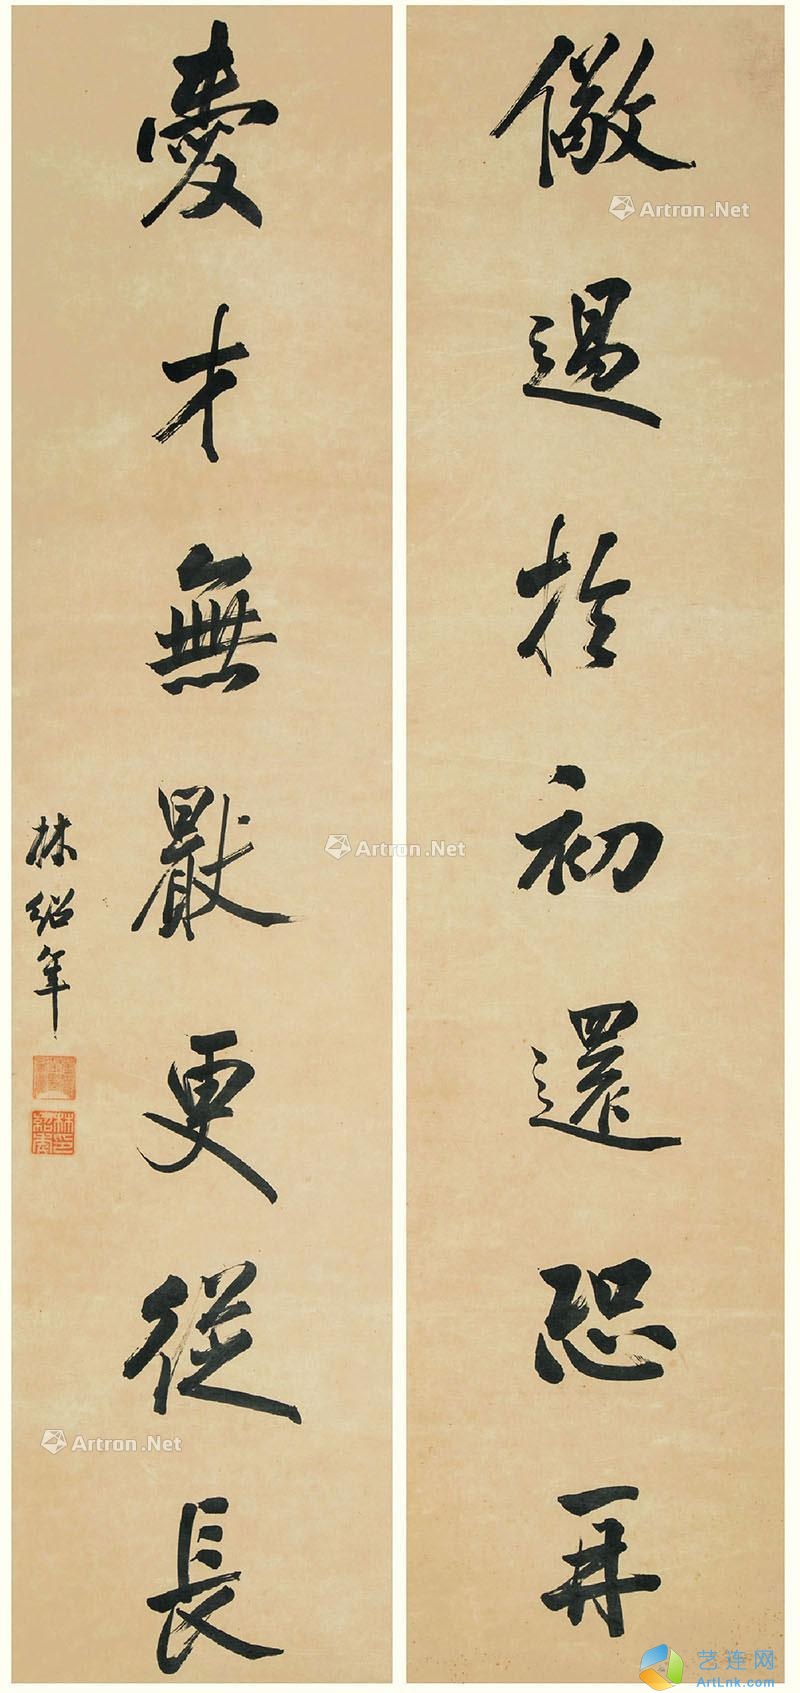 儆過於初還恐再
愛才無厭更從長
林紹年
林印紹年
Artron.Net
Artron.Net
Artron.Net
艺连网
ArtLnk.Com